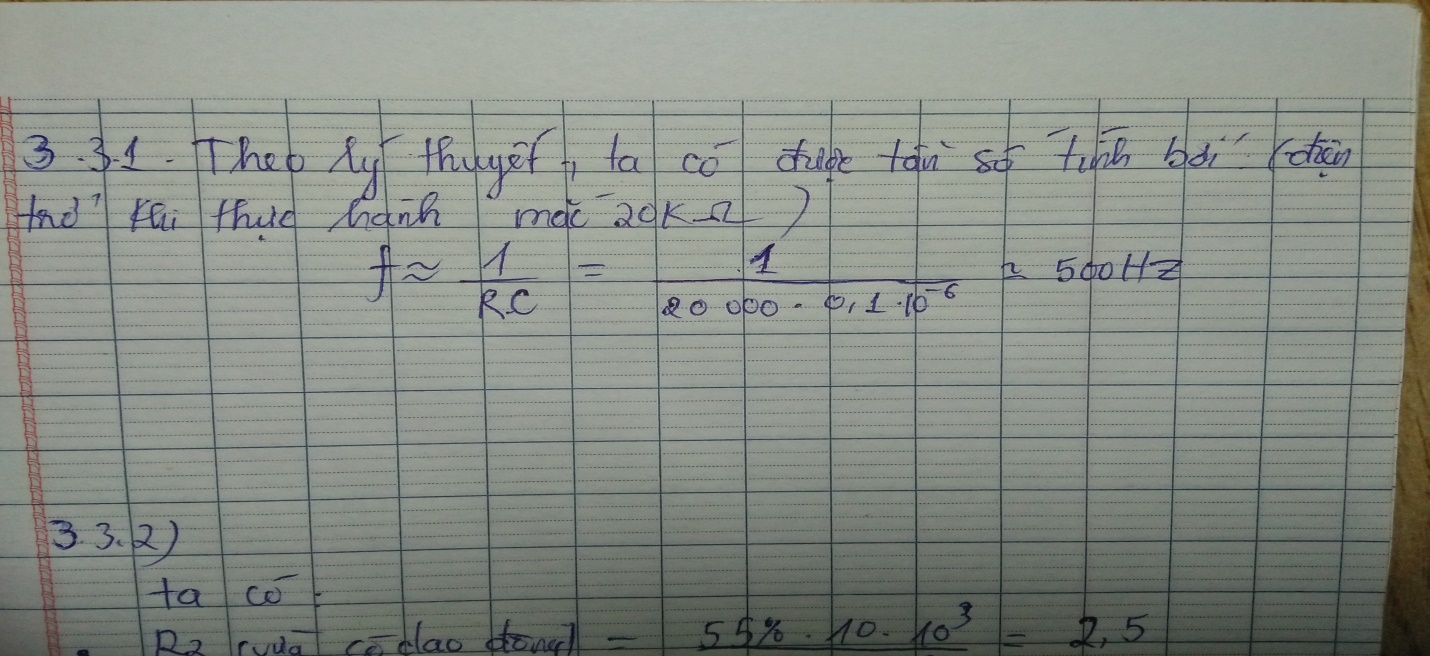 3.3.1. Theo lý thuyết, ta có được tần số tính bởi (điện
trở khi thực hành mắc 20KΩ)
f ≈ 1/RC = 1/(20 000 . 0,1.10⁻⁶) ≈ 500Hz
3.3.2)
ta có:
R2 (vừa có dao động) = 55% . 10 . 10³ = 2,5